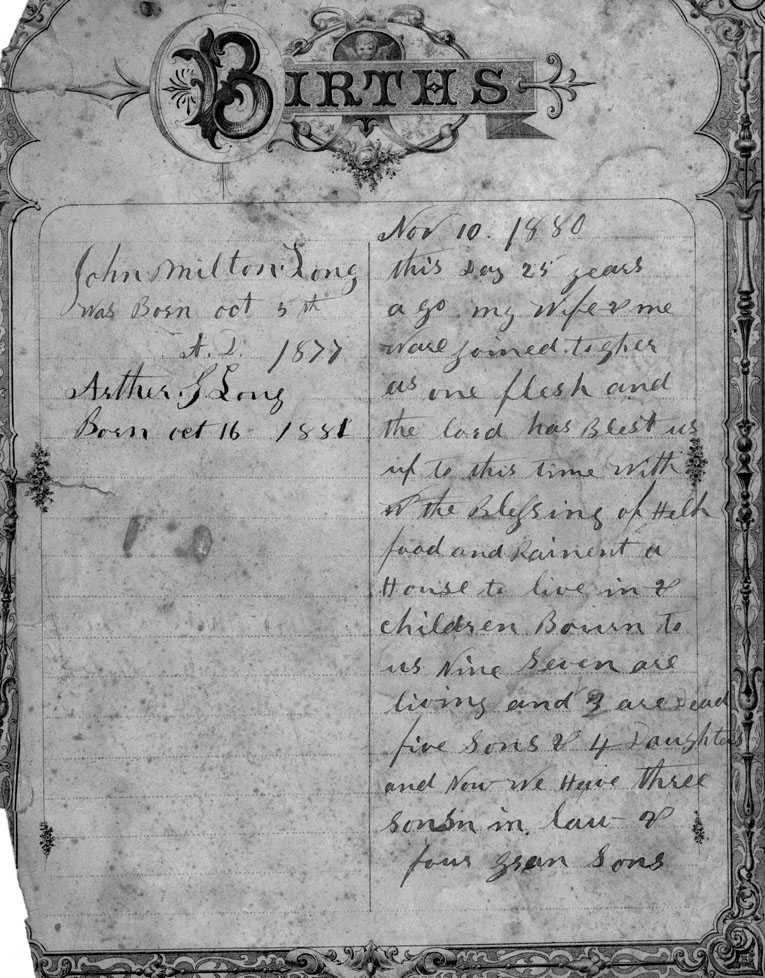 BIRTHS
John Milton Long
Was Born oct 5th
A.D. 1877
Arther G Long
Born oct 16 1881
Nov 10. 1880
this Day 25 years
a go my Wife & me
ware joined togher
as one flesh and
the lord has Blest us
up to this time With
the Blessing of Helh
food and Raiment a
House to live in &
children Bourn to
us Nine Seven are
living and 2 are Dead
five Sons & 4 Daughters
and Now We Have three
in law &
four gran Sons